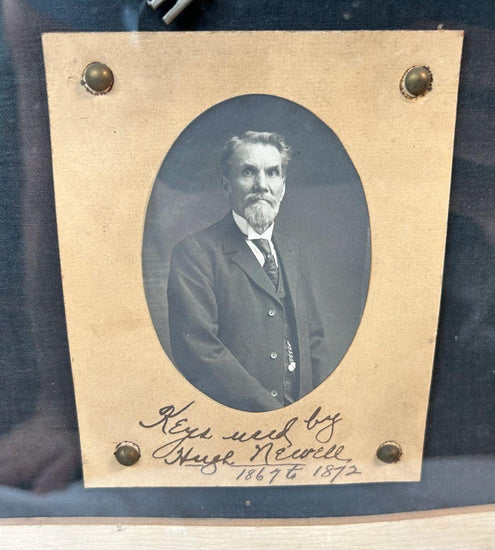 Keys used by
Hugh Newell
1867 to 1872